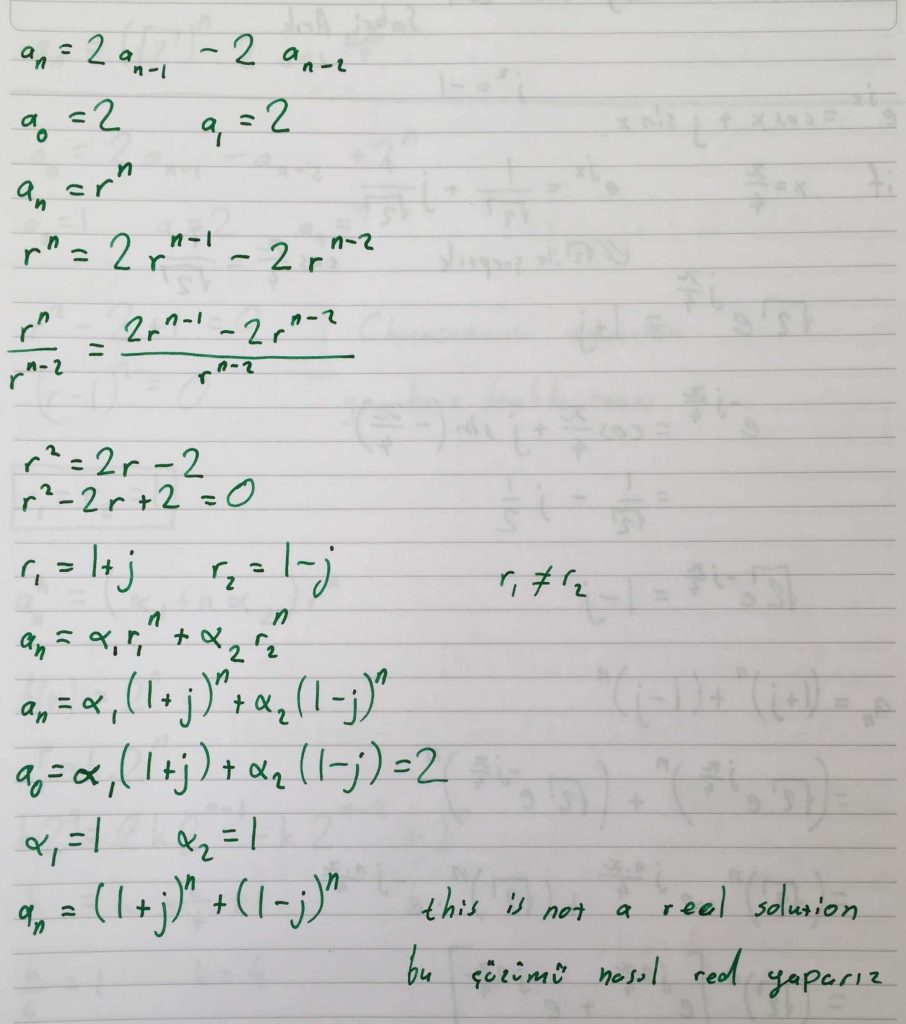 aₙ = 2 aₙ₋₁ - 2 aₙ₋₂
a₀ = 2 a₁ = 2
aₙ = rⁿ
rⁿ = 2 rⁿ⁻¹ - 2 rⁿ⁻²
rⁿ / rⁿ⁻² = (2rⁿ⁻¹ - 2rⁿ⁻²) / rⁿ⁻²
r² = 2r - 2
r² - 2r + 2 = 0
r₁ = 1+j r₂ = 1-j r₁ ≠ r₂
aₙ = α₁ r₁ⁿ + α₂ r₂ⁿ
aₙ = α₁ (1+j)ⁿ + α₂ (1-j)ⁿ
a₀ = α₁ (1+j) + α₂ (1-j) = 2
α₁ = 1 α₂ = 1
aₙ = (1+j)ⁿ + (1-j)ⁿ this is not a real solution
bu çözümü nasıl red yaparız